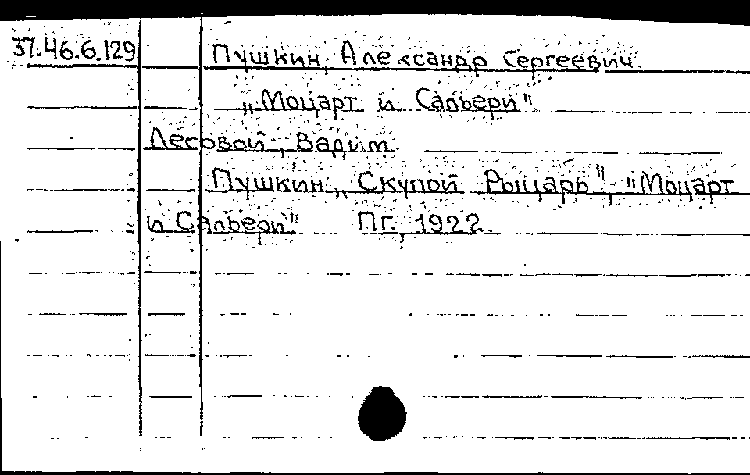 37.46.6.129 Пушкин, Александр Сергеевич.
„Моцарт и Сальери"
Лесовой, Вадим.
Пушкин „Скупой Рыцарь", "Моцарт
и Сальери" Пг., 1922.